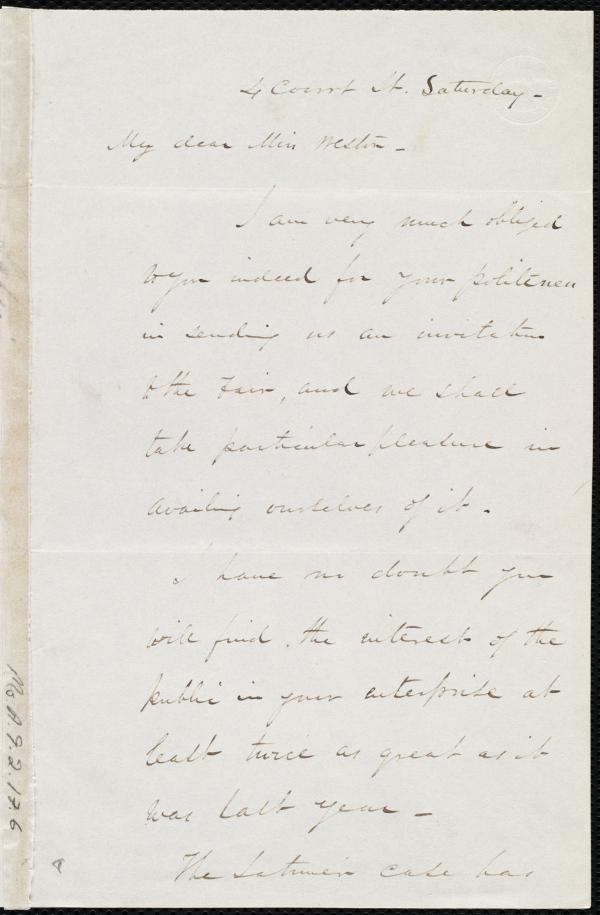 4 Court St. Saturday -
My dear Miss Weston -
I am very much obliged
to you indeed for your politeness
in sending us an invitation
to the Fair, and we shall
take particular pleasure in
availing ourselves of it.
I have no doubt you
will find the interest of the
public in your enterprise at
least twice as great as it
was last year -
The Latimer case has
Ms.A.9.2.17.6